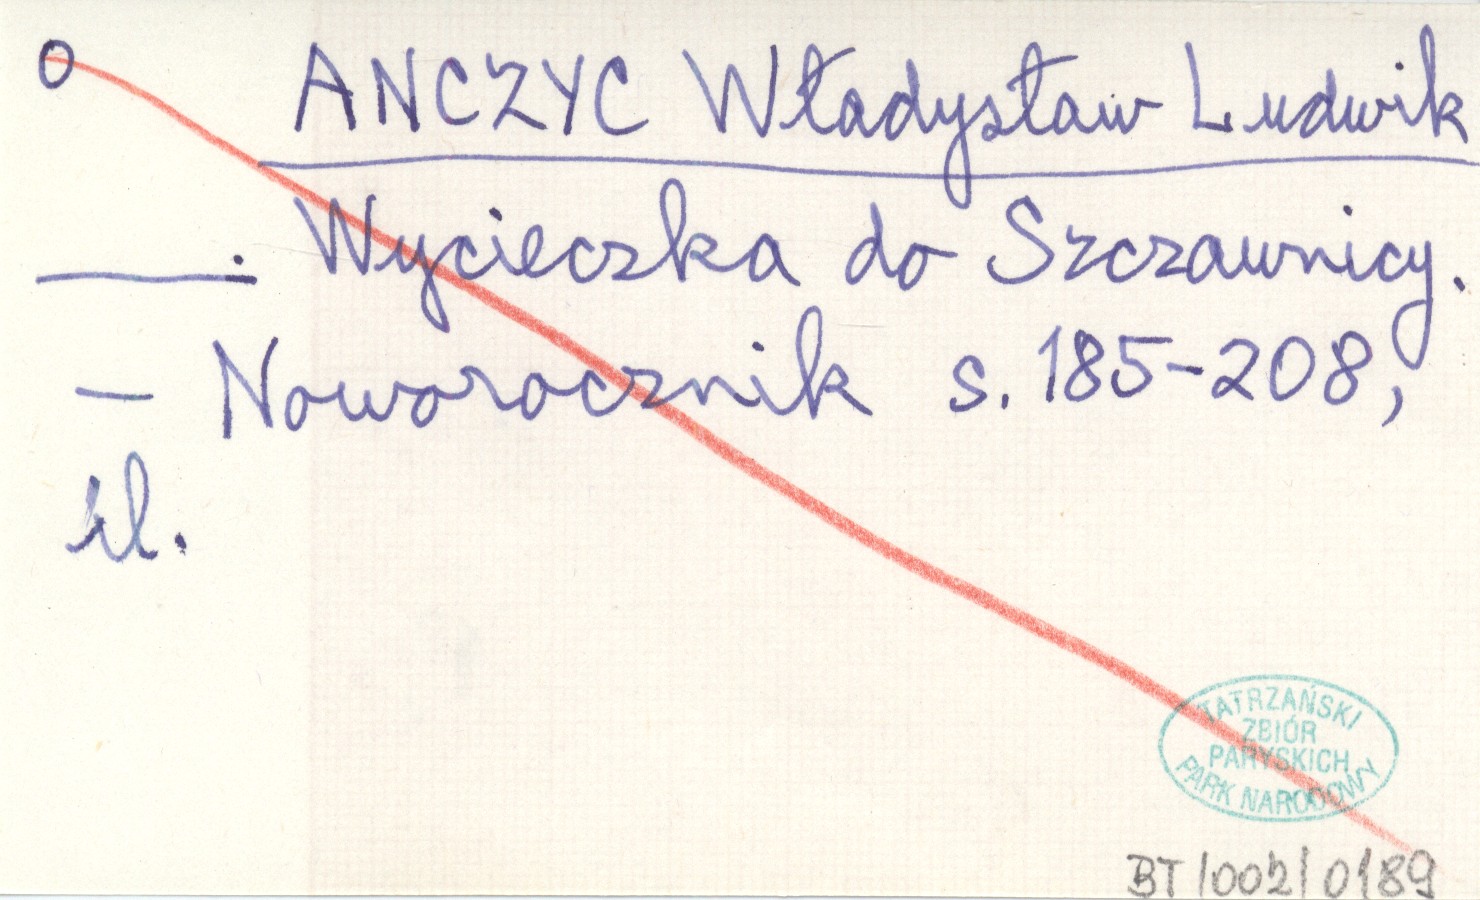 O ANCZYC Władysław Ludwik
. Wycieczka do Szczawnicy.
— Noworocznik s. 185-208,
il.
TATRZAŃSKI
ZBIÓR
PARYSKICH
PARK NARODOWY
BT/002/0189